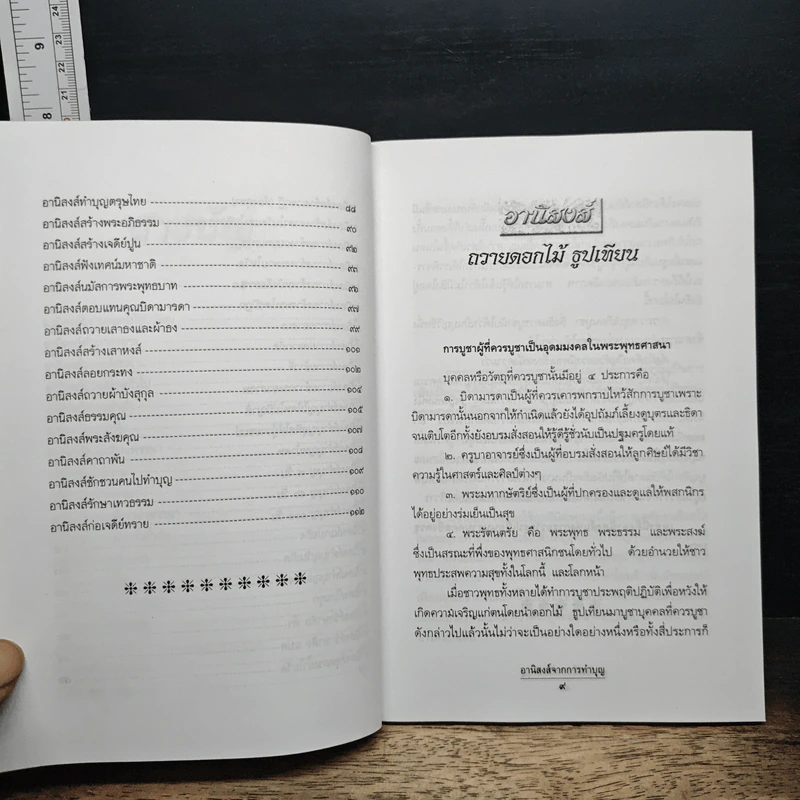 9
8
24
23
22
21
อานิสงส์ทำบุญตรุษไทย ๘๘
อานิสงส์สร้างพระอภิธรรม ๙๐
อานิสงส์สร้างเจดีย์ปูน ๙๒
อานิสงส์ฟังเทศน์มหาชาติ ๙๓
อานิสงส์นมัสการพระพุทธบาท ๙๖
อานิสงส์ตอบแทนคุณบิดามารดา ๙๗
อานิสงส์ถวายเสาธงและผ้าธง ๙๙
อานิสงส์สร้างเสาหงส์ ๑๐๑
อานิสงส์ลอยกระทง ๑๐๒
อานิสงส์ถวายผ้าบังสุกุล ๑๐๔
อานิสงส์ธรรมคุณ ๑๐๕
อานิสงส์พระสังฆคุณ ๑๐๗
อานิสงส์คาถาพัน ๑๐๘
อานิสงส์ชักชวนคนไปทำบุญ ๑๐๙
อานิสงส์รักษาเทวธรรม ๑๑๐
อานิสงส์ก่อเจดีย์ทราย ๑๑๒
อานิสงส์
ถวายดอกไม้ ธูปเทียน
การบูชาผู้ที่ควรบูชาเป็นอุดมมงคลในพระพุทธศาสนา
บุคคลหรือวัตถุที่ควรบูชานั้นมีอยู่ ๔ ประการคือ
๑. บิดามารดาเป็นผู้ที่ควรเคารพกราบไหว้สักการบูชาเพราะ
บิดามารดานั้นนอกจากให้กำเนิดแล้วยังได้อุปถัมภ์เลี้ยงดูบุตรและธิดา
จนเติบโตอีกทั้งยังอบรมสั่งสอนให้รู้ดีรู้ชั่วนับเป็นปฐมครูโดยแท้
๒. ครูบาอาจารย์ซึ่งเป็นผู้ที่อบรมสั่งสอนให้ลูกศิษย์ได้มีวิชา
ความรู้ในศาสตร์และศิลป์ต่างๆ
๓. พระมหากษัตริย์ซึ่งเป็นผู้ที่ปกครองและดูแลให้พสกนิกร
ได้อยู่อย่างร่มเย็นเป็นสุข
๔. พระรัตนตรัย คือ พระพุทธ พระธรรม และพระสงฆ์
ซึ่งเป็นสรณะที่พึ่งของพุทธศาสนิกชนโดยทั่วไป ด้วยอำนวยให้ชาว
พุทธประสพความสุขทั้งในโลกนี้ และโลกหน้า
เมื่อชาวพุทธทั้งหลายได้ทำการบูชาประพฤติปฏิบัติเพื่อหวังให้
เกิดความเจริญแก่ตนโดยนำดอกไม้ ธูปเทียนมาบูชาบุคคลที่ควรบูชา
ดังกล่าวไปแล้วนั้นไม่ว่าจะเป็นอย่างใดอย่างหนึ่งหรือทั้งสี่ประการก็
อานิสงส์จากการทำบุญ
๙